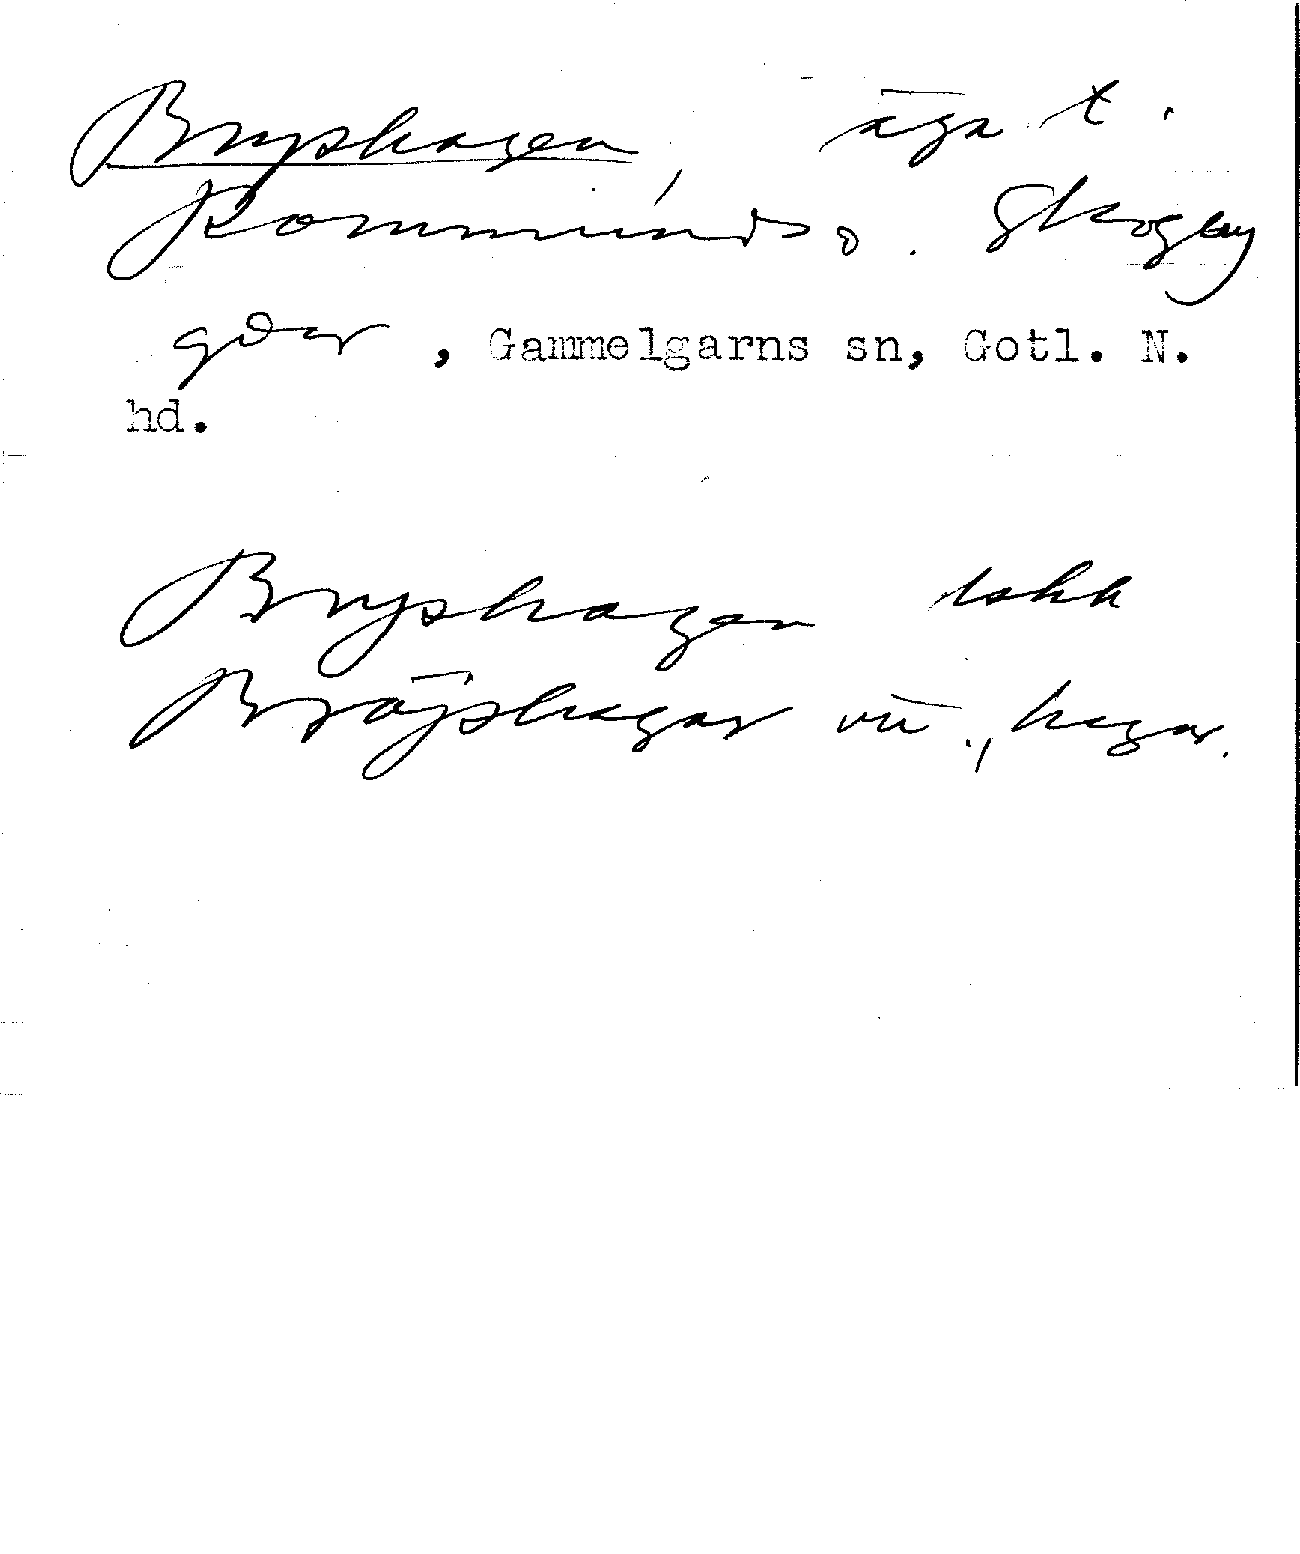 Bryshagen, äga t.
Rommunds o. Skogby
gdar, Gammelgarns sn, Gotl. N.
hd.
Bryshagen lskk
Bröjshagar vii., hagar.